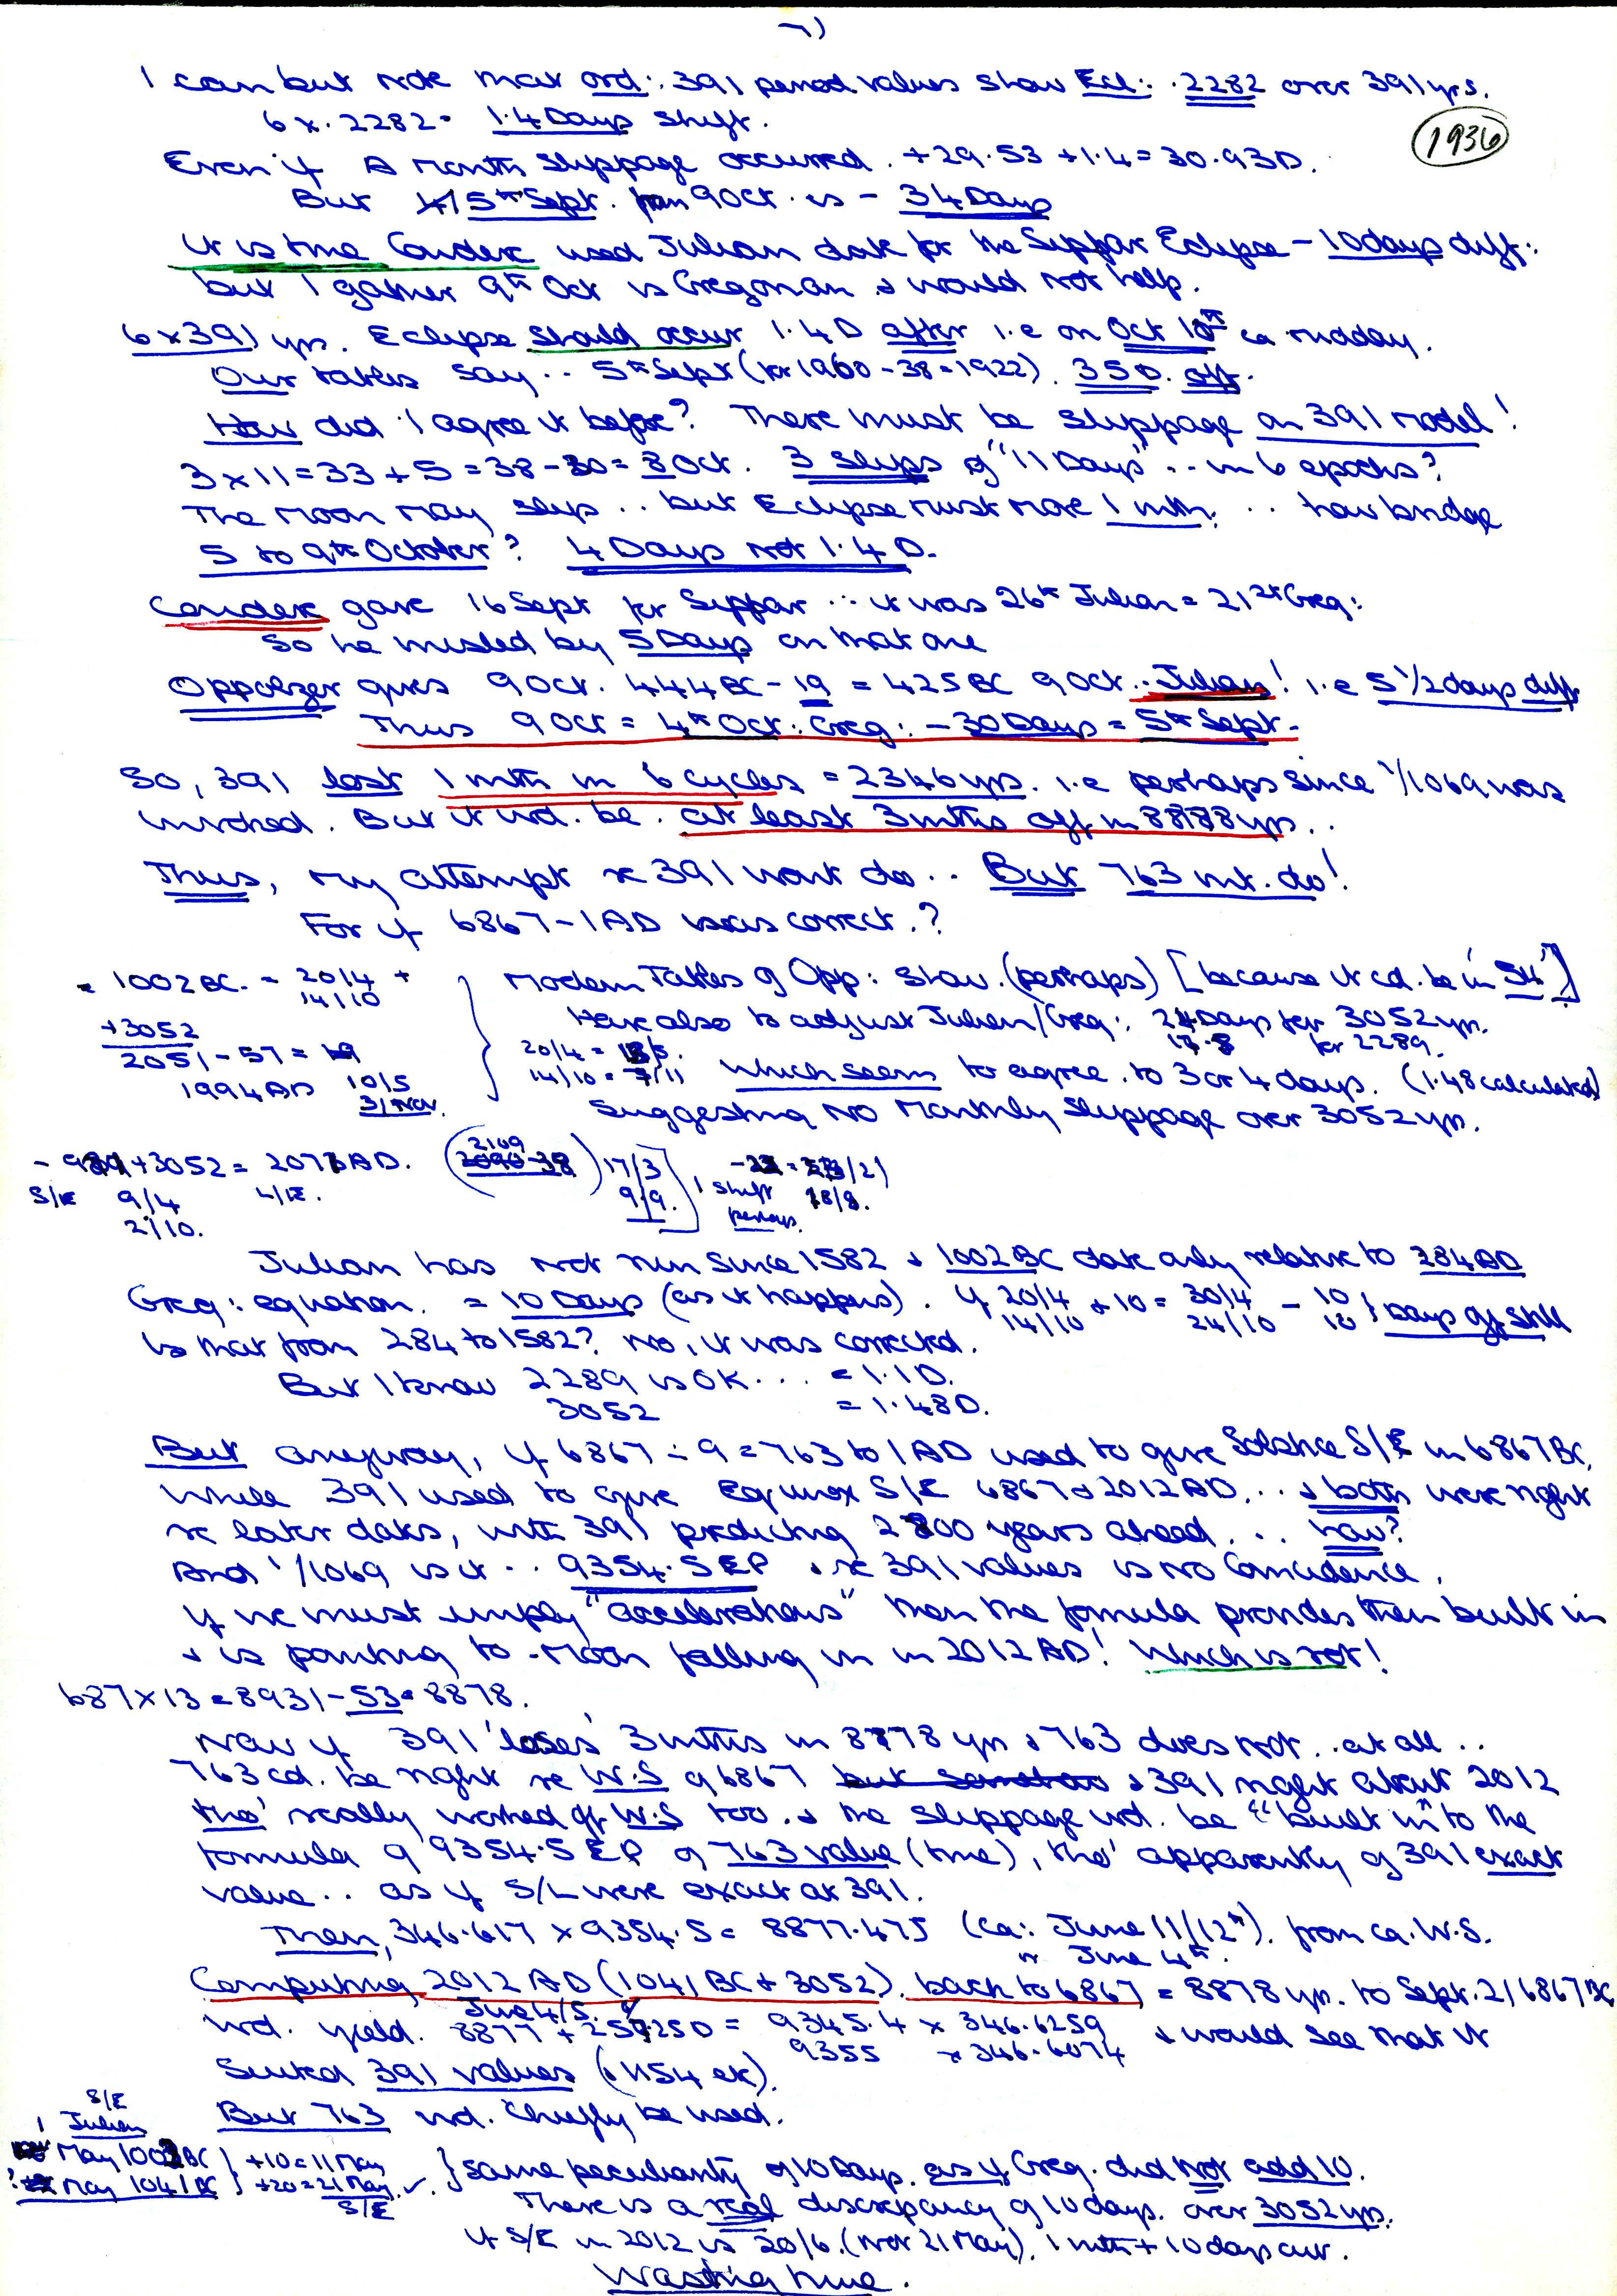 7)
I can but note that ord: 391 period values show Ecl: .2282 over 391 yrs.
6 x .2282 = 1.4 Days shift.
1936
Even if A month slippage occurred. +29.53 + 1.4 = 30.93D.
But 5th Sept. from 9 Oct. is - 34 Days
It is true Couderc used Julian date for the Sippar Eclipse - 10 days diff:
but I gather 9th Oct is Gregorian & would not help.
6 x 391 yrs. Eclipse should occur 1.4D after i.e on Oct 10th ca midday.
Our tables say .. 5th Sept (for 1960 - 38 = 1922). 35D. off.
How did I agree it before? There must be slippage on 391 model!
3 x 11 = 33 + 5 = 38 - 30 = 8 Oct. 3 slips of "11 Days" .. in 6 epochs?
The moon may slip .. but Eclipse must move 1 mth. .. how bridge
5 to 9th October? 4 Days not 1.4D.
Couderc gave 16 Sept for Sippar ... it was 26th Julian = 21st Greg:
So he misled by 5 Days on that one
Oppolzer gives 9 Oct. 444BC - 19 = 425BC 9 Oct .. Julian! i.e 5 1/2 days diff
Thus 9 Oct = 4th Oct. Greg: - 30 Days = 5th Sept.
So, 391 lost 1 mth in 6 cycles = 2346 yrs. i.e perhaps since 1/1069 was
involved. But it wd. be at least 3 mths off in 8878 yrs..
Thus, my attempt re 391 wont do .. But 763 mt. do!
For if 6867 - 1AD was correct.?
= 1002BC. = 20/4 +
14/10
+3052
2051 - 57 = 19
1994AD 10/5
3/Nov.
Modern Tables of Opp: show. (perhaps) [because it cd. be in 54]
Have also to adjust Julian/Greg: 24 Days for 3052 yrs.
for 2289.
20/4 =
14/10 = 7/11
which seems to agree. to 3 or 4 days. (1.48 calculated)
Suggesting No Monthly Slippage over 3052 yrs.
+3052 = 2071AD. (2109) 17/3
S/E 9/4 L/E. 9/9. 1 shift 18/8.
2/10. perhaps.
Julian has not run since 1582 & 1002BC date only relative to 284AD
Greg: equation. = 10 Days (as it happens). If 20/4 + 10 = 30/4 - 10 } Days off still
14/10 24/10 10
Is that from 284 to 1582? No, it was corrected.
But I know 2289 is OK... = 1.1D.
3052 = 1.48D.
But anyway, if 6867 ÷ 9 = 763 to 1AD used to give Solstice S/E in 6867BC,
while 391 used to give Equinox S/E 6867 & 2012AD... & both were right
re later dates, with 391 predicting 2800 years ahead ... how?
And 1/1069 is it .. 9354.5 EP & re 391 values is no Coincidence.
If we must imply "accelerations" then the formula provides them built in
& is pointing to Moon falling in in 2012AD! Which is rot!
687 x 13 = 8931 - 53 = 8878.
Now if 391 'loses' 3 mths in 8878 yrs & 763 does not.. at all ..
763 cd. be right re W.S of 6867 & 391 right about 2012
tho' really worked off W.S too. & the slippage wd. be "built in" to the
formula of 9354.5 EP of 763 value (true), tho' apparently of 391 exact
value .. as if S/L were exact at 391.
Then, 346.617 x 9354.5 = 8877.475 (ca: June 11/12th). from ca. W.S.
or June 4th.
Computing 2012AD (1041BC + 3052). back to 6867 = 8878 yrs. to Sept. 21 6867BC
June 4/5.
wd. yield. 8877 + = 9345.4 x 346.6259 & would see that it
9355 x 346.6074
Suited 391 values (.1154 etc).
But 763 wd. Chiefly be used.
S/E
1 Julian
May 1003BC } +10 = 11 May
? May 1041BC } +20 = 21 May ✓.
S/E
} same peculiarity of 10 Days. as if Greg. did not add 10.
There is a real discrepancy of 10 days. over 3052 yrs.
If S/E in 2012 is 20/6. (not 21 May). 1 mth + 10 days out.
Wasting time.